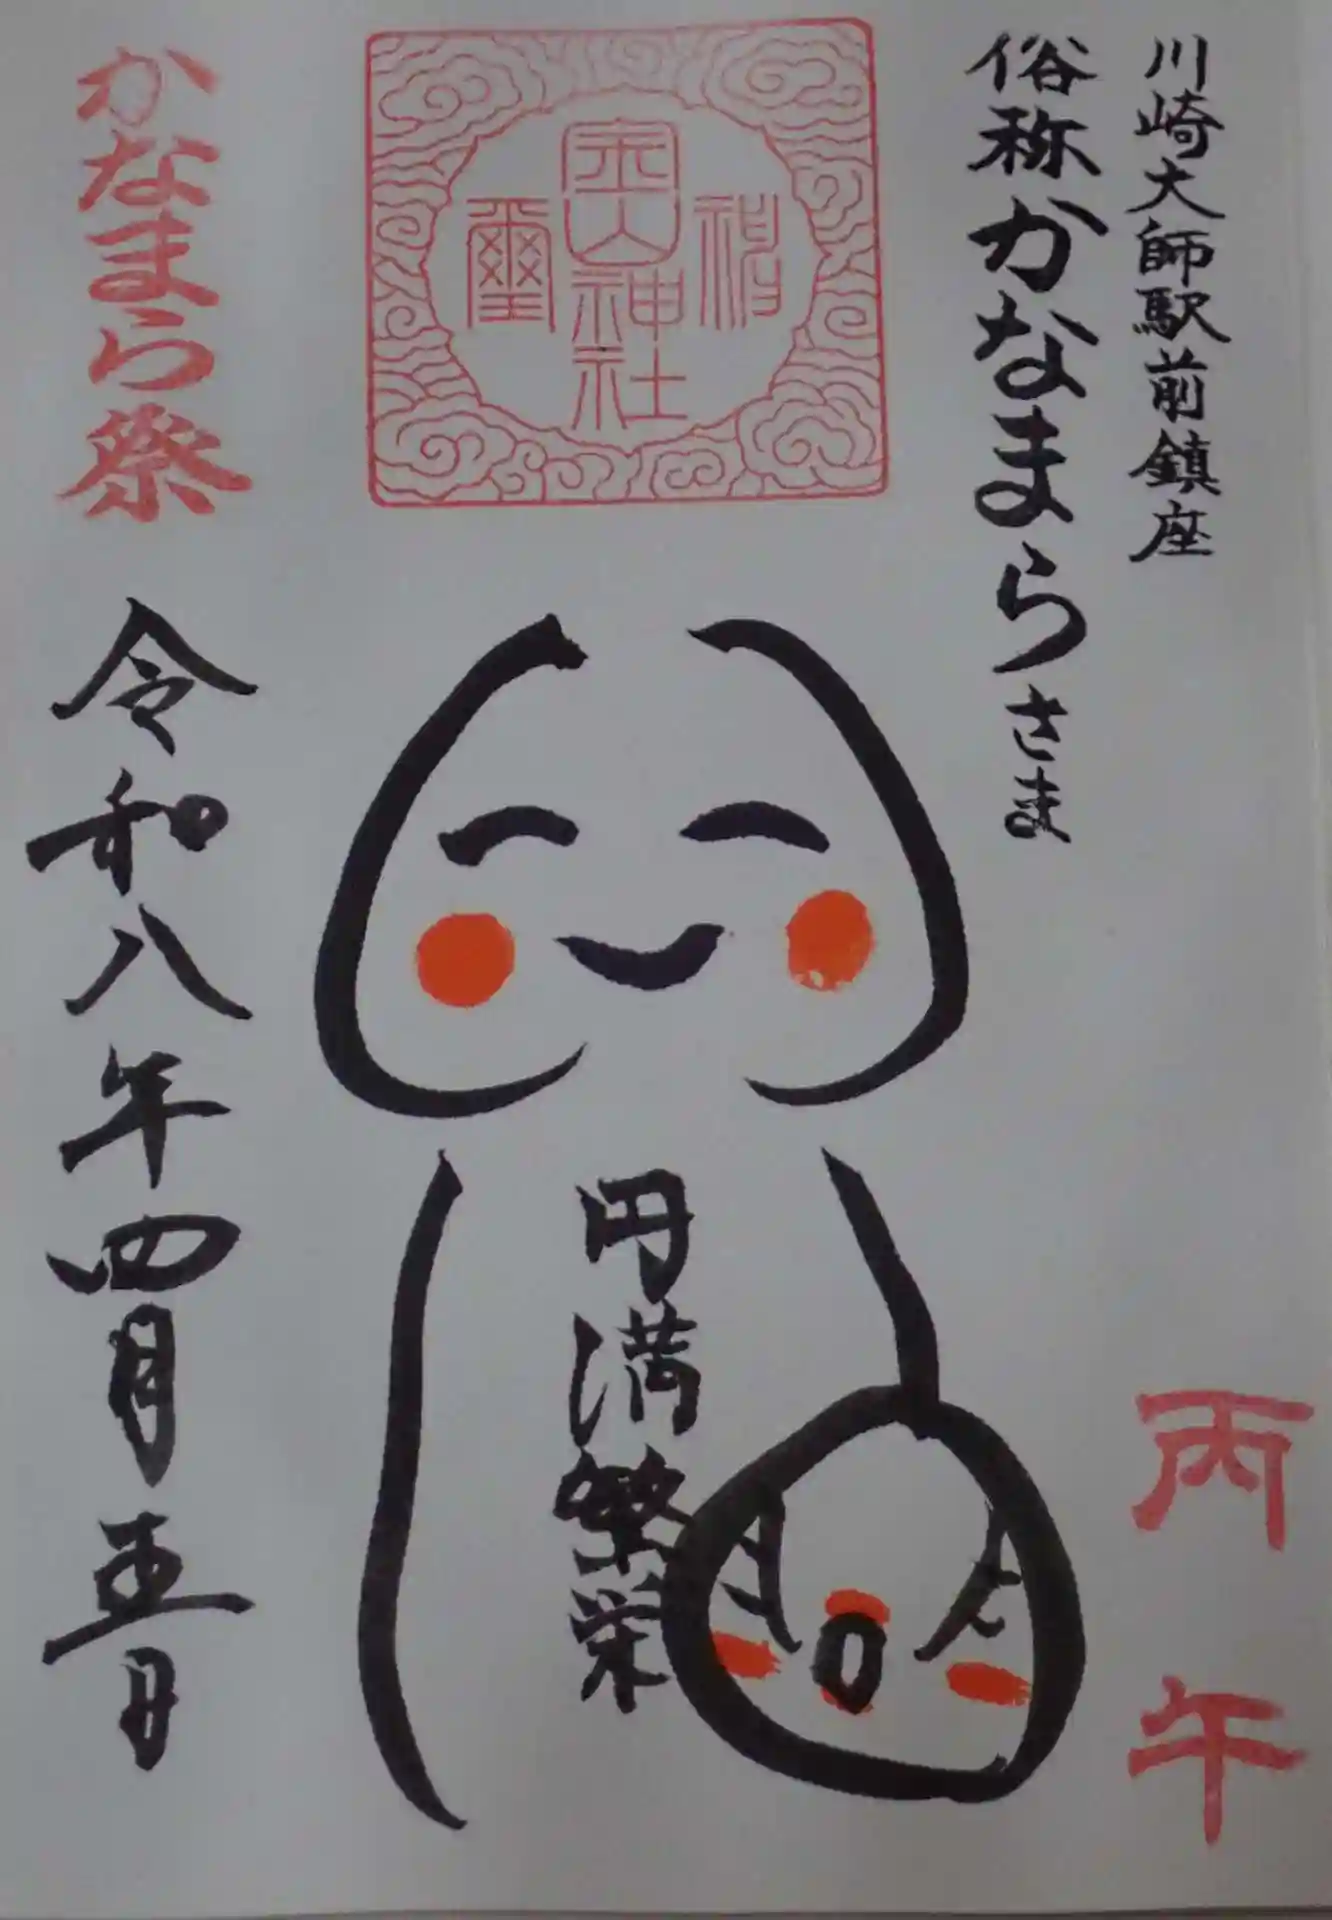 川崎大師駅前鎮座
俗称かなまらさま
丙午
金山神社
璽
円満繁栄
かなまら祭
令和八年四月五日